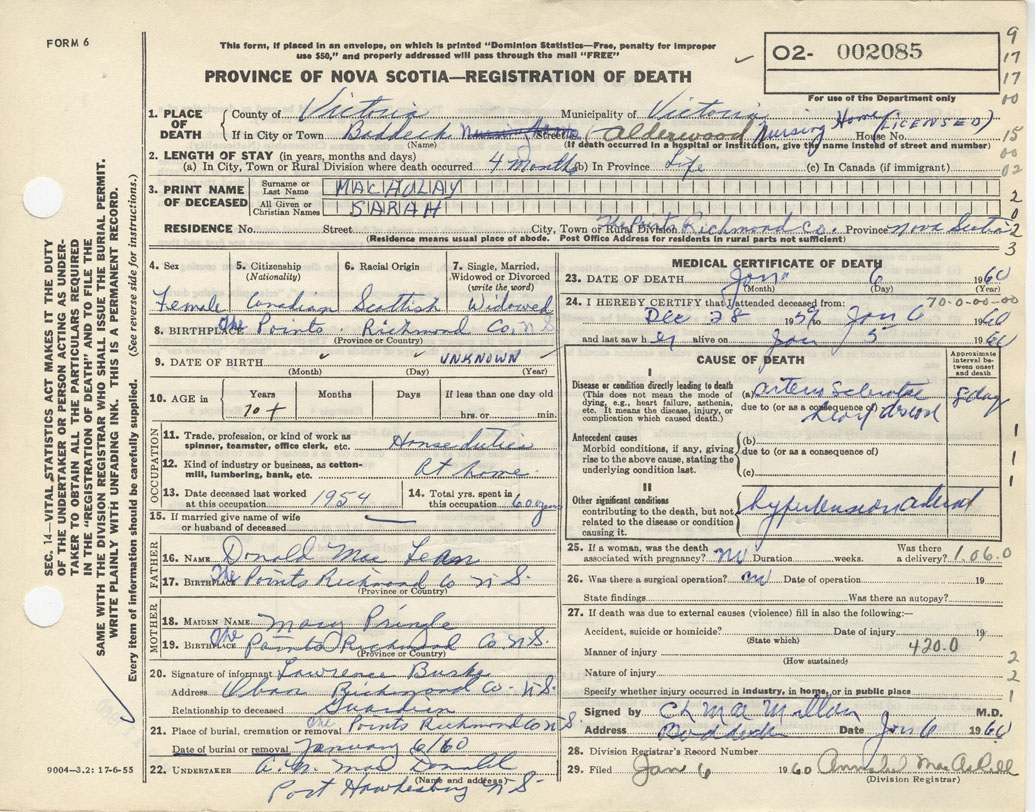 FORM 6
This form, if placed in an envelope, on which is printed "Dominion Statistics—Free, penalty for improper
use $50," and properly addressed will pass through the mail "FREE"
PROVINCE OF NOVA SCOTIA—REGISTRATION OF DEATH
O2- 002085
For use of the Department only
9
17
17
00
15
00
02
2
0
2
3
1
1
1
2
2
1
SEC. 14—VITAL STATISTICS ACT MAKES IT THE DUTY
OF THE UNDERTAKER OR PERSON ACTING AS UNDER-
TAKER TO OBTAIN ALL THE PARTICULARS REQUIRED
IN THE "REGISTRATION OF DEATH" AND TO FILE THE
SAME WITH THE DIVISION REGISTRAR WHO SHALL ISSUE THE BURIAL PERMIT.
WRITE PLAINLY WITH UNFADING INK. THIS IS A PERMANENT RECORD.
Every item of information should be carefully supplied. (See reverse side for instructions.)
1. PLACE OF DEATH County of Victoria Municipality of Victoria
If in City or Town Baddeck Street (Alderwood Nursing Home LICENSED) House No.
(Name) (If death occurred in a hospital or institution, give the name instead of street and number)
2. LENGTH OF STAY (in years, months and days)
(a) In City, Town or Rural Division where death occurred 4 months (b) In Province Life (c) In Canada (if immigrant)
3. PRINT NAME OF DECEASED Surname or Last Name MACAULAY
All Given or Christian Names SARAH
RESIDENCE No. Street City, Town or Rural Division The Points Richmond Co. Province Nova Scotia
(Residence means usual place of abode. Post Office Address for residents in rural parts not sufficient)
4. Sex 5. Citizenship (Nationality) 6. Racial Origin 7. Single, Married, Widowed or Divorced (write the word)
Female Canadian Scottish Widowed
8. BIRTHPLACE The Points. Richmond Co. N S
(Province or Country)
9. DATE OF BIRTH UNKNOWN
(Month) (Day) (Year)
10. AGE in Years Months Days If less than one day old
70+ hrs. or min.
OCCUPATION
11. Trade, profession, or kind of work as spinner, teamster, office clerk, etc. House duties
12. Kind of industry or business, as cotton-mill, lumbering, bank, etc. At home.
13. Date deceased last worked at this occupation 1954 14. Total yrs. spent in this occupation 60 years
15. If married give name of wife or husband of deceased
FATHER
16. NAME Donald Mac Lean
17. BIRTHPLACE The Points Richmond Co N S.
(Province or Country)
MOTHER
18. MAIDEN NAME Mary Pringle
19. BIRTHPLACE The Points Richmond Co. N S.
(Province or Country)
20. Signature of informant Lawrence Burke
Address Oban Richmond Co. N S.
Relationship to deceased Guardian
21. Place of burial, cremation or removal The Points Richmond Co N S.
Date of burial or removal January 6/60
22. UNDERTAKER A. W. Mac Donald
(Name and address)
Port Hawkesbury N S.
9004—3.2: 17-6-55
MEDICAL CERTIFICATE OF DEATH
23. DATE OF DEATH Jan 6 1960
(Month) (Day) (Year)
24. I HEREBY CERTIFY that I attended deceased from: 70-0-00-00
Dec 28 1959 to Jan 6 1960
and last saw her alive on Jan 5 1960
CAUSE OF DEATH
Approximate interval between onset and death
I
Disease or condition directly leading to death
(This does not mean the mode of dying, e.g., heart failure, asthenia, etc. It means the disease, injury, or complication which caused death.)
(a) arterio sclerotic 8 days
due to (or as a consequence of) heart disease
Antecedent causes
Morbid conditions, if any, giving rise to the above cause, stating the underlying condition last.
(b)
due to (or as a consequence of)
(c)
II
Other significant conditions
contributing to the death, but not related to the disease or condition causing it.
hypertension
25. If a woman, was the death associated with pregnancy? no Duration weeks. Was there a delivery? 1.06.0
26. Was there a surgical operation? no Date of operation 19
State findings Was there an autopsy?
27. If death was due to external causes (violence) fill in also the following:—
Accident, suicide or homicide? Date of injury 19
(State which)
Manner of injury 420.0
(How sustained)
Nature of injury
Specify whether injury occurred in industry, in home, or in public place
Signed by C L MacMillan M.D.
Address Baddeck Date Jan 6 1960
28. Division Registrar's Record Number
29. Filed Jan 6 1960 Annabel MacAskill
(Division Registrar)